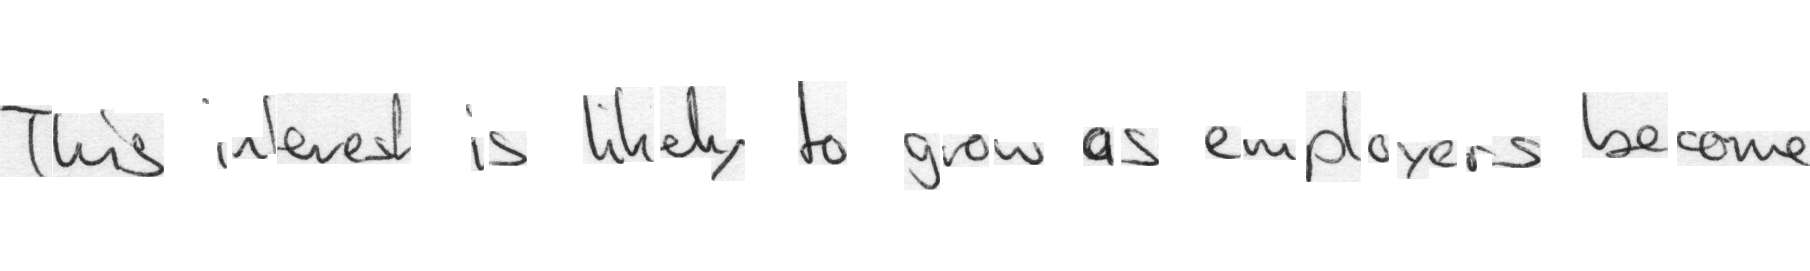 This interest is likely to grow as employers become